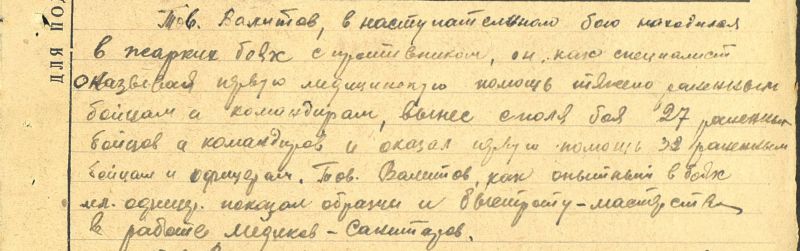 ДЛЯ ПО
Тов. Валитов, в наступательном бою находился
в жарких боях с противником, он, как специалист
оказывая первую медицинскую помощь тяжело раненным
бойцам и командирам, вынес с поля боя 27 раненых
бойцов и командиров и оказал первую помощь 32 раненным
бойцам и офицерам. Тов. Валитов, как опытный в боях
мл. офицер. показал образцы и быстроту-мастерства
в работе медиков-санитаров.